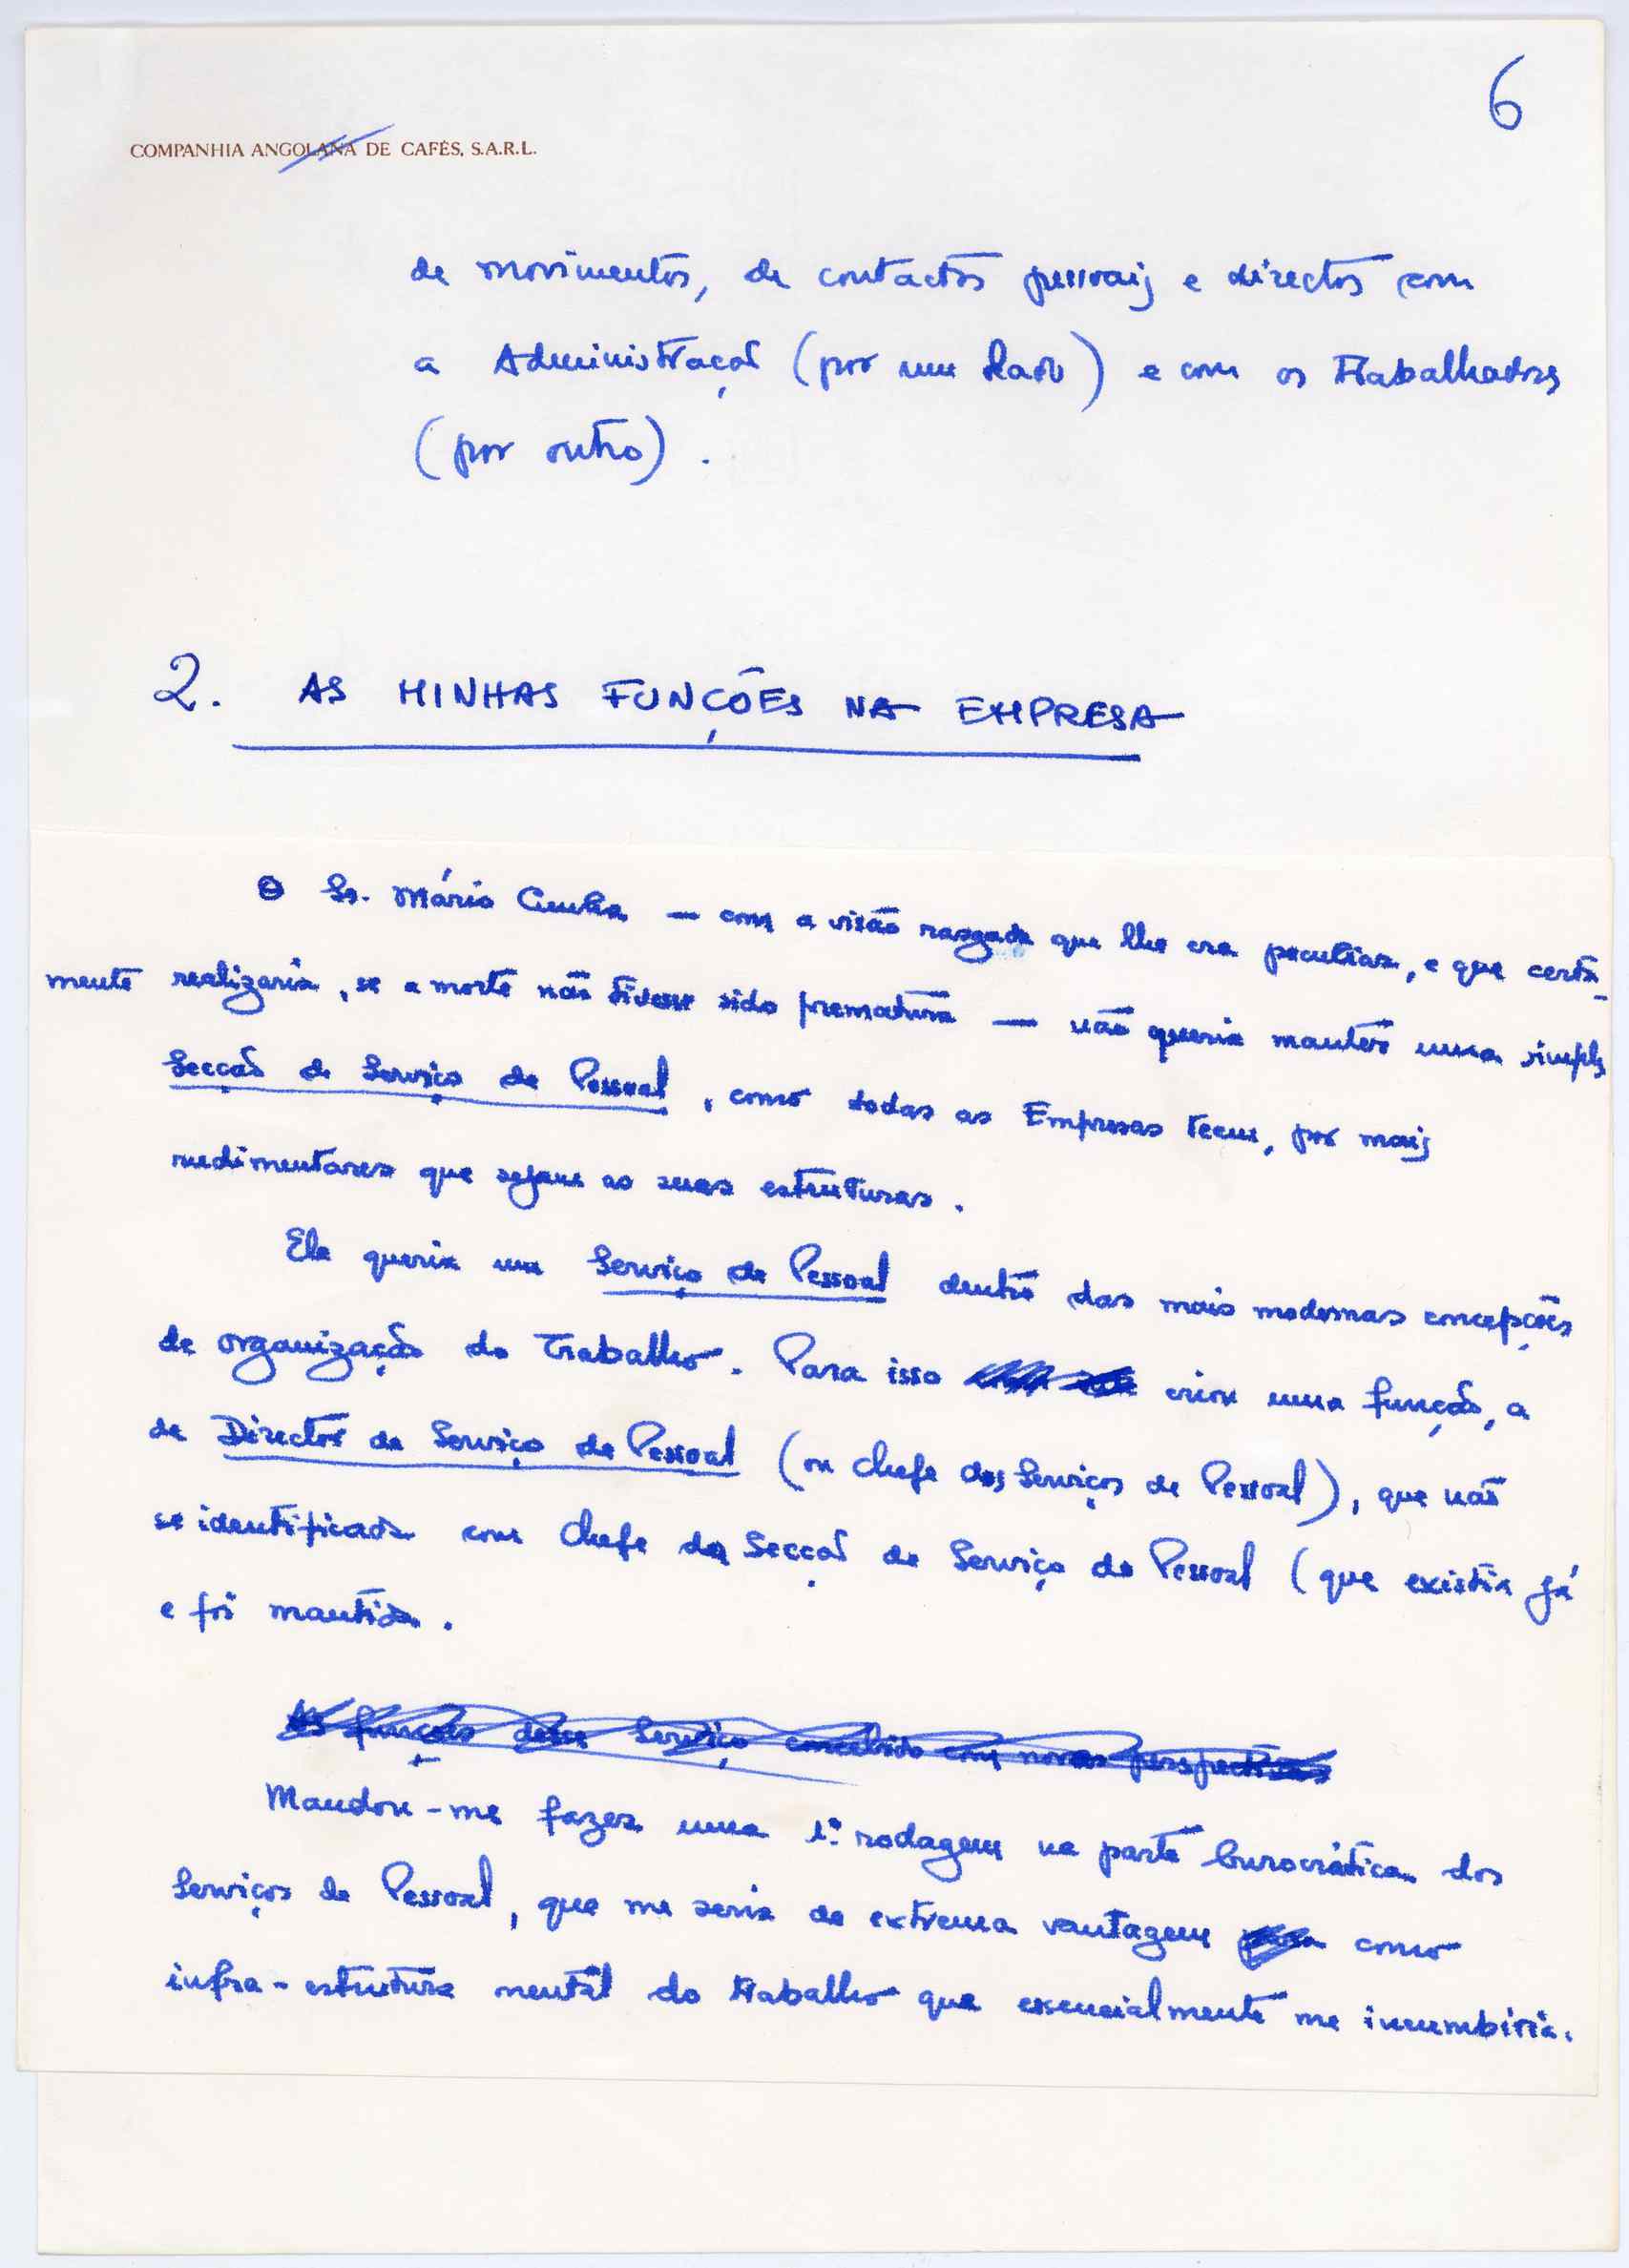 6
COMPANHIA ANGOLANA DE CAFÉS, S.A.R.L.
de movimentos, de contactos pessoais e directos com
a Administração (por um lado) e com os Trabalhadores
(por outro).
2. AS MINHAS FUNÇÕES NA EMPRESA
O Sr. Mário Cunha — com a visão rasgada que lhe era peculiar, e que certa-
mente realizaria, se a morte não tivesse sido prematura — não queria manter uma simples
Secção de Serviço de Pessoal, como todas as Empresas teem, por mais
rudimentares que sejam as suas estruturas.
Ele queria um Serviço de Pessoal dentro das mais modernas concepções
de organização do Trabalho. Para isso criou uma função, a
de Director de Serviço de Pessoal (ou chefe dos Serviços de Pessoal), que não
se identificava com Chefe da Secção de Serviço de Pessoal (que existia já
e foi mantida.
As funções desse Serviço concebido com novas perspectivas
Mandou-me fazer uma 1ª rodagem na parte burocrática dos
Serviços de Pessoal, que me seria de extrema vantagem para como
infra-estrutura mental do trabalho que essencialmente me incumbiria.